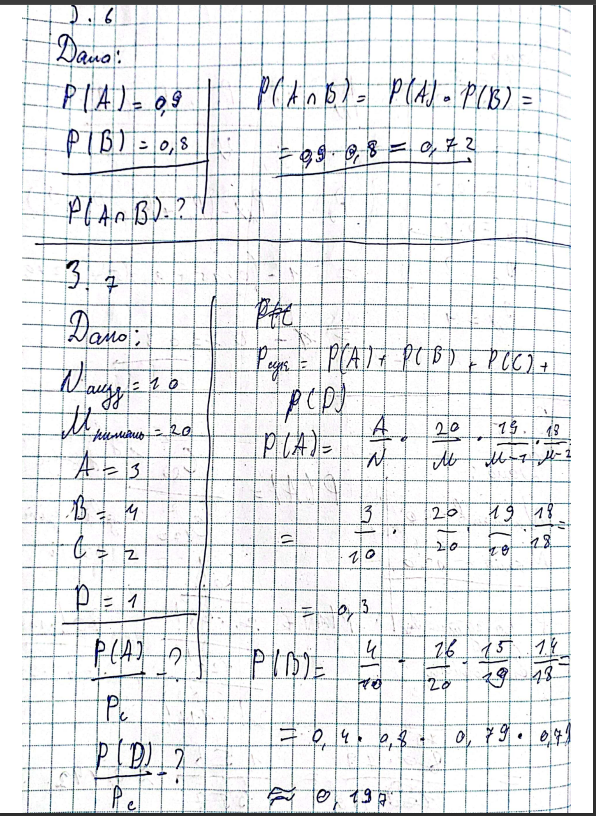 З. 6
Дано:
P(A) = 0,9
P(B) = 0,8
P(A∩B) - ?
P(A∩B) = P(A) · P(B) =
= 0,9 · 0,8 = 0,72
З. 7
Дано:
N = 10
M = 20
A = 3
B = 4
C = 2
D = 1
P(A)/Pc - ?
P(D)/Pc - ?
= P(A) + P(B) + P(C) +
P(D)
P(A) = A/N · 20/M · 19/M-1 · 18/M-2
= 3/10 · 20/20 · 19/19 · 18/18 =
= 0,3
P(B) = 4/10 · 16/20 · 15/19 · 14/18 =
= 0,4 · 0,8 · 0,79 ·
≈ 0,197